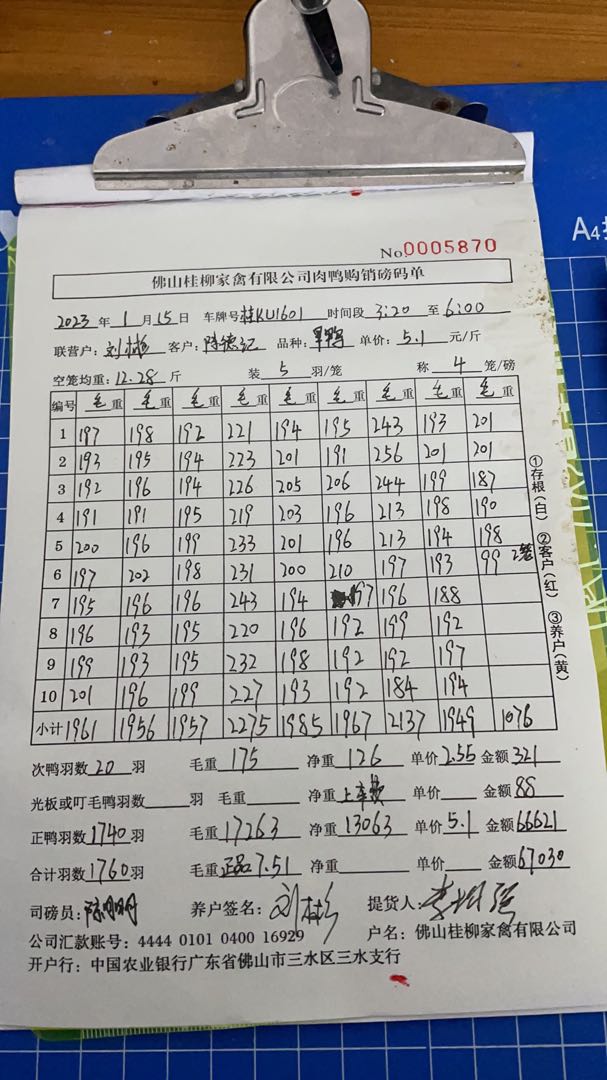 No.0005870
佛山桂柳家禽有限公司肉鸭购销磅码单
2023 年 1 月 15 日 车牌号 桂KU1601 时间段 3:20 至 6:00
联营户: 刘彬 客户: 陈德记 品种: 单价: 5.1 元/斤
空笼均重: 12.28 斤 装 5 羽/笼 称 4 笼/磅
编号 毛重 毛重 毛重 毛重 毛重 毛重 毛重 毛重 毛重
1 197 198 192 221 194 195 243 193 201
2 193 195 194 223 201 191 256 201 201
3 192 196 194 226 205 206 244 199 187
4 191 191 195 219 203 196 213 198 190
5 200 196 199 233 201 196 213 194 198
6 197 202 198 231 200 210 197 193 99 2笼
7 195 196 196 243 194 197 196 188
8 196 193 195 220 196 192 199 192
9 199 193 195 232 198 192 192 197
10 201 196 199 227 193 192 184 194
小计 1961 1956 1957 2275 1985 1967 2137 1949 1076
①存根(白) ②客户(红) ③养户(黄)
次鸭羽数 20 羽 毛重 175 净重 126 单价 2.55 金额 321
光板或叮毛鸭羽数 羽 毛重 净重 上车费 单价 金额 88
正鸭羽数 1740 羽 毛重 17263 净重 13063 单价 5.1 金额 66621
合计羽数 1760 羽 毛重 正品7.51 净重 单价 金额 67030
司磅员: 陈明明 养户签名: 刘彬 提货人:
公司汇款账号: 4444 0101 0400 16929 户名: 佛山桂柳家禽有限公司
开户行: 中国农业银行广东省佛山市三水区三水支行
A4